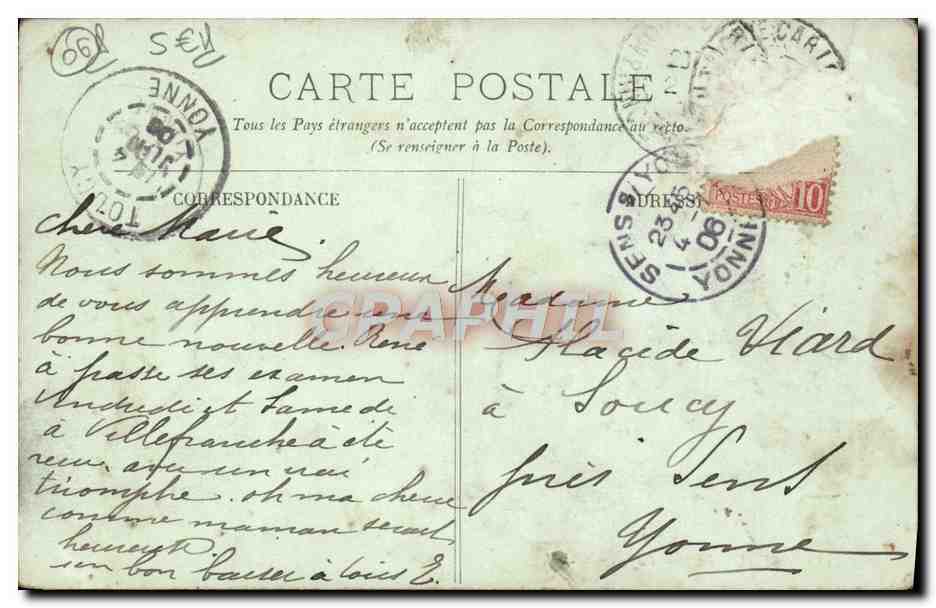 R35
R90
CARTE POSTALE
Tous les Pays étrangers n'acceptent pas la Correspondance au recto.
(Se renseigner à la Poste).
TOUCY
YONNE
4
JUIN
06
SENS S/YONNE
YONNE
23
4
06
POSTES
10
CORRESPONDANCE
ADRESSE
Chère Marie
Nous sommes heureux
de vous apprendre une
bonne nouvelle. René
à passé ses examen
Vendredi et Samedi
à Villefranche à été
recu. avec un vrai
triomphe. oh ma chère
comme maman serait
heureuse.
un bon baiser à tous E.
Madame
Placide Viard
à Soucy
près Sens
Yonne
CPAPHIL